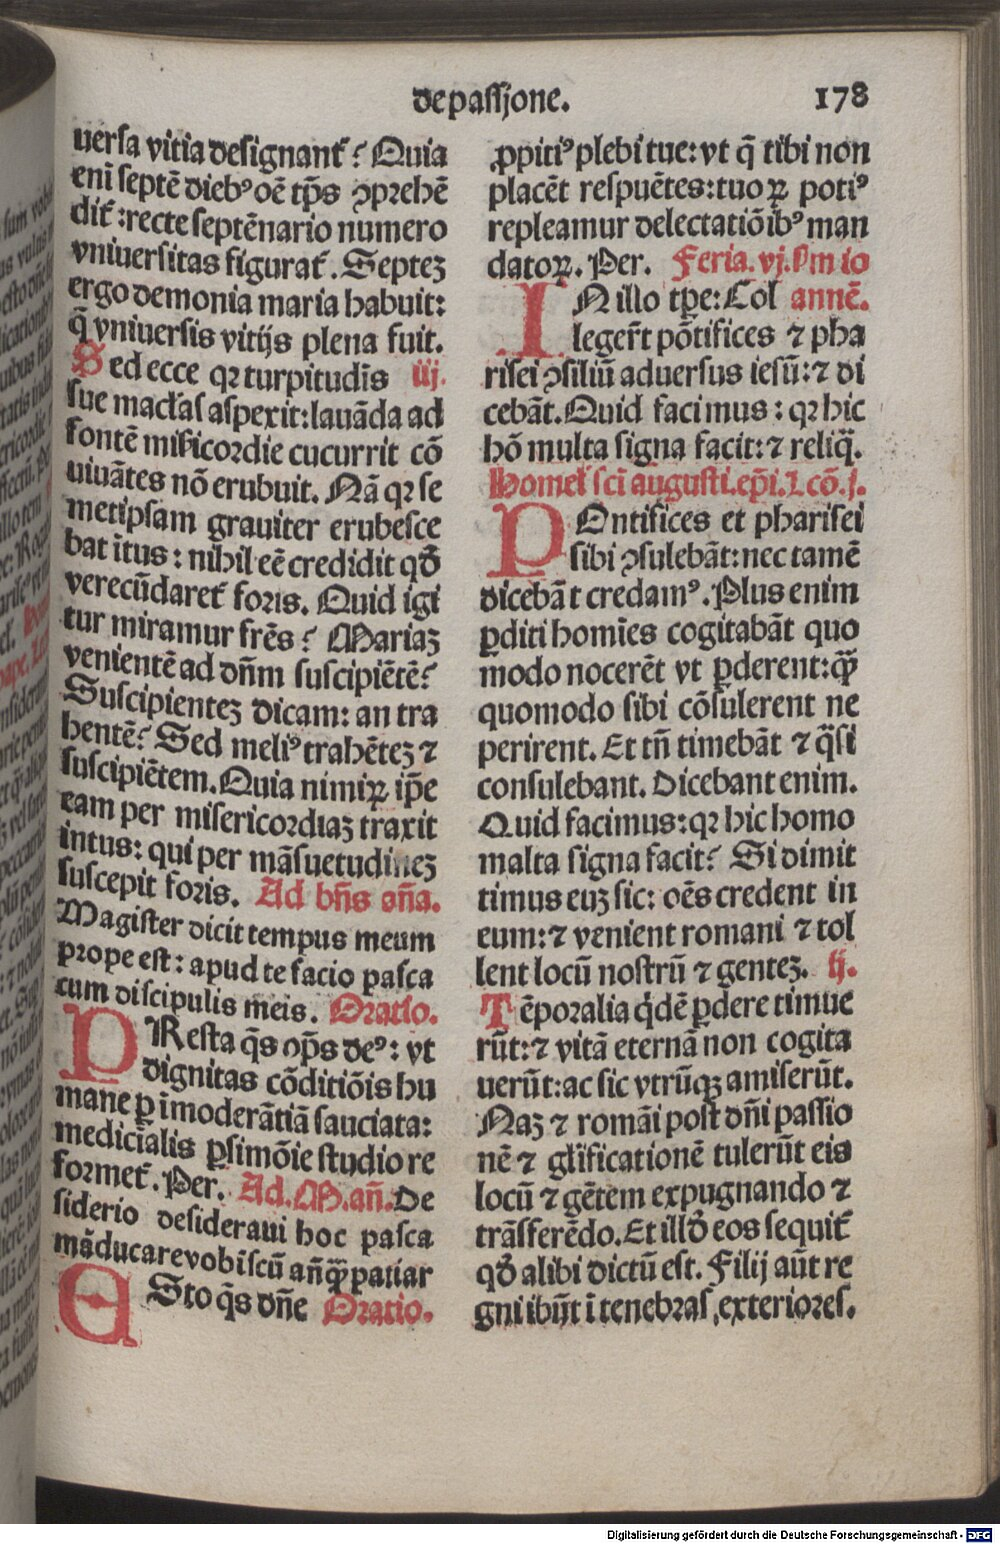 de passione.
178
uersa vitia designant᷑? Quia
eni̅ septe̅ dieb⁹ oe̅ tp̅s ꝯprehe̅
dit᷑: recte septe̅nario numero
vniuersitas figurat᷑. Septeꝫ
ergo demonia maria habuit:
q̅ vniuersis vitijs plena fuit.
Sed ecce qꝛ turpitudi̅s iij.
sue mac̅las aspexit: laua̅da ad
fonte̅ mis̅icordie cucurrit co̅
uiua̅tes no̅ erubuit. Na̅ qꝛ se
metipsam grauiter erubesce
bat i̅tus: nihil ee̅ credidit qđ
verecu̅daret᷑ foris. Quid igi
tur miramur fre̅s? Mariaꝫ
veniente̅ ad dn̅m suscipie̅te̅?
Suscipienteꝫ dicam: an tra
hente̅? Sed meli⁹ trahe̅teꝫ ⁊
suscipie̅tem. Quia nimiꝝ ip̅e
eam per misericordiaꝫ traxit
intus: qui per ma̅suetudineꝫ
suscepit foris. Ad bn̅s an̅a.
Magister dicit tempus meum
prope est: apud te facio pasca
cum discipulis meis. Oratio.
PResta q̅s op̅s de⁹: vt
dignitas co̅ditio̅is hu
mane ꝑ i̅modera̅tia̅ sauciata:
medicinalis ꝑsimo̅ie studio re
formet᷑. Per. Ad. M. an̅. De
siderio desideraui hoc pasca
ma̅ducare vobiscu̅ an̅q̅ꝫ patiar
ESto q̅s dn̅e Oratio.
ꝓpiti⁹ plebi tue: vt q̅ tibi non
place̅t respue̅tes: tuoꝝ poti⁹
repleamur delectatio̅ib⁹ man
datoꝝ. Per. Feria. vj. Sm io
IN illo tp̅e: Col anne̅.
leger̅t po̅tifices ⁊ pha
risei ꝯsiliu̅ aduersus iesu̅: ⁊ di
ceba̅t. Quid facimus: qꝛ hic
ho̅ multa signa facit: ⁊ reliq̅.
Homel̅ sci̅ augusti. ep̅i. L co̅. j.
POntifices et pharisei
sibi ꝯsuleba̅t: nec tame̅
diceba̅t credam⁹. Plus enim
ꝑditi homi̅es cogitaba̅t quo
modo nocere̅t vt ꝑderent: q̅ꝫ
quomodo sibi co̅sulerent ne
perirent. Et tn̅ timeba̅t ⁊ q̅si
consulebant. Dicebant enim.
Quid facimus: qꝛ hic homo
malta signa facit? Si dimit
timus euꝫ sic: oe̅s credent in
eum: ⁊ venient romani ⁊ tol
lent locu̅ nostru̅ ⁊ genteꝫ. ij.
Te̅poralia q̇de̅ ꝑdere timue
ru̅t: ⁊ vita̅ eterna̅ non cogita
ueru̅t: ac sic vtru̅qꝫ amiseru̅t.
Naꝫ ⁊ roma̅i post dn̅i passio
ne̅ ⁊ gl̅ificatione̅ tuleru̅t eis
locu̅ ⁊ ge̅tem expugnando ⁊
tra̅sfere̅do. Et illđ eos sequit᷑
qđ alibi dictu̅ est. Filij au̅t re
gni ibu̅t i̅ tenebras exteriores.
Digitalisierung gefördert durch die Deutsche Forschungsgemeinschaft - DFG